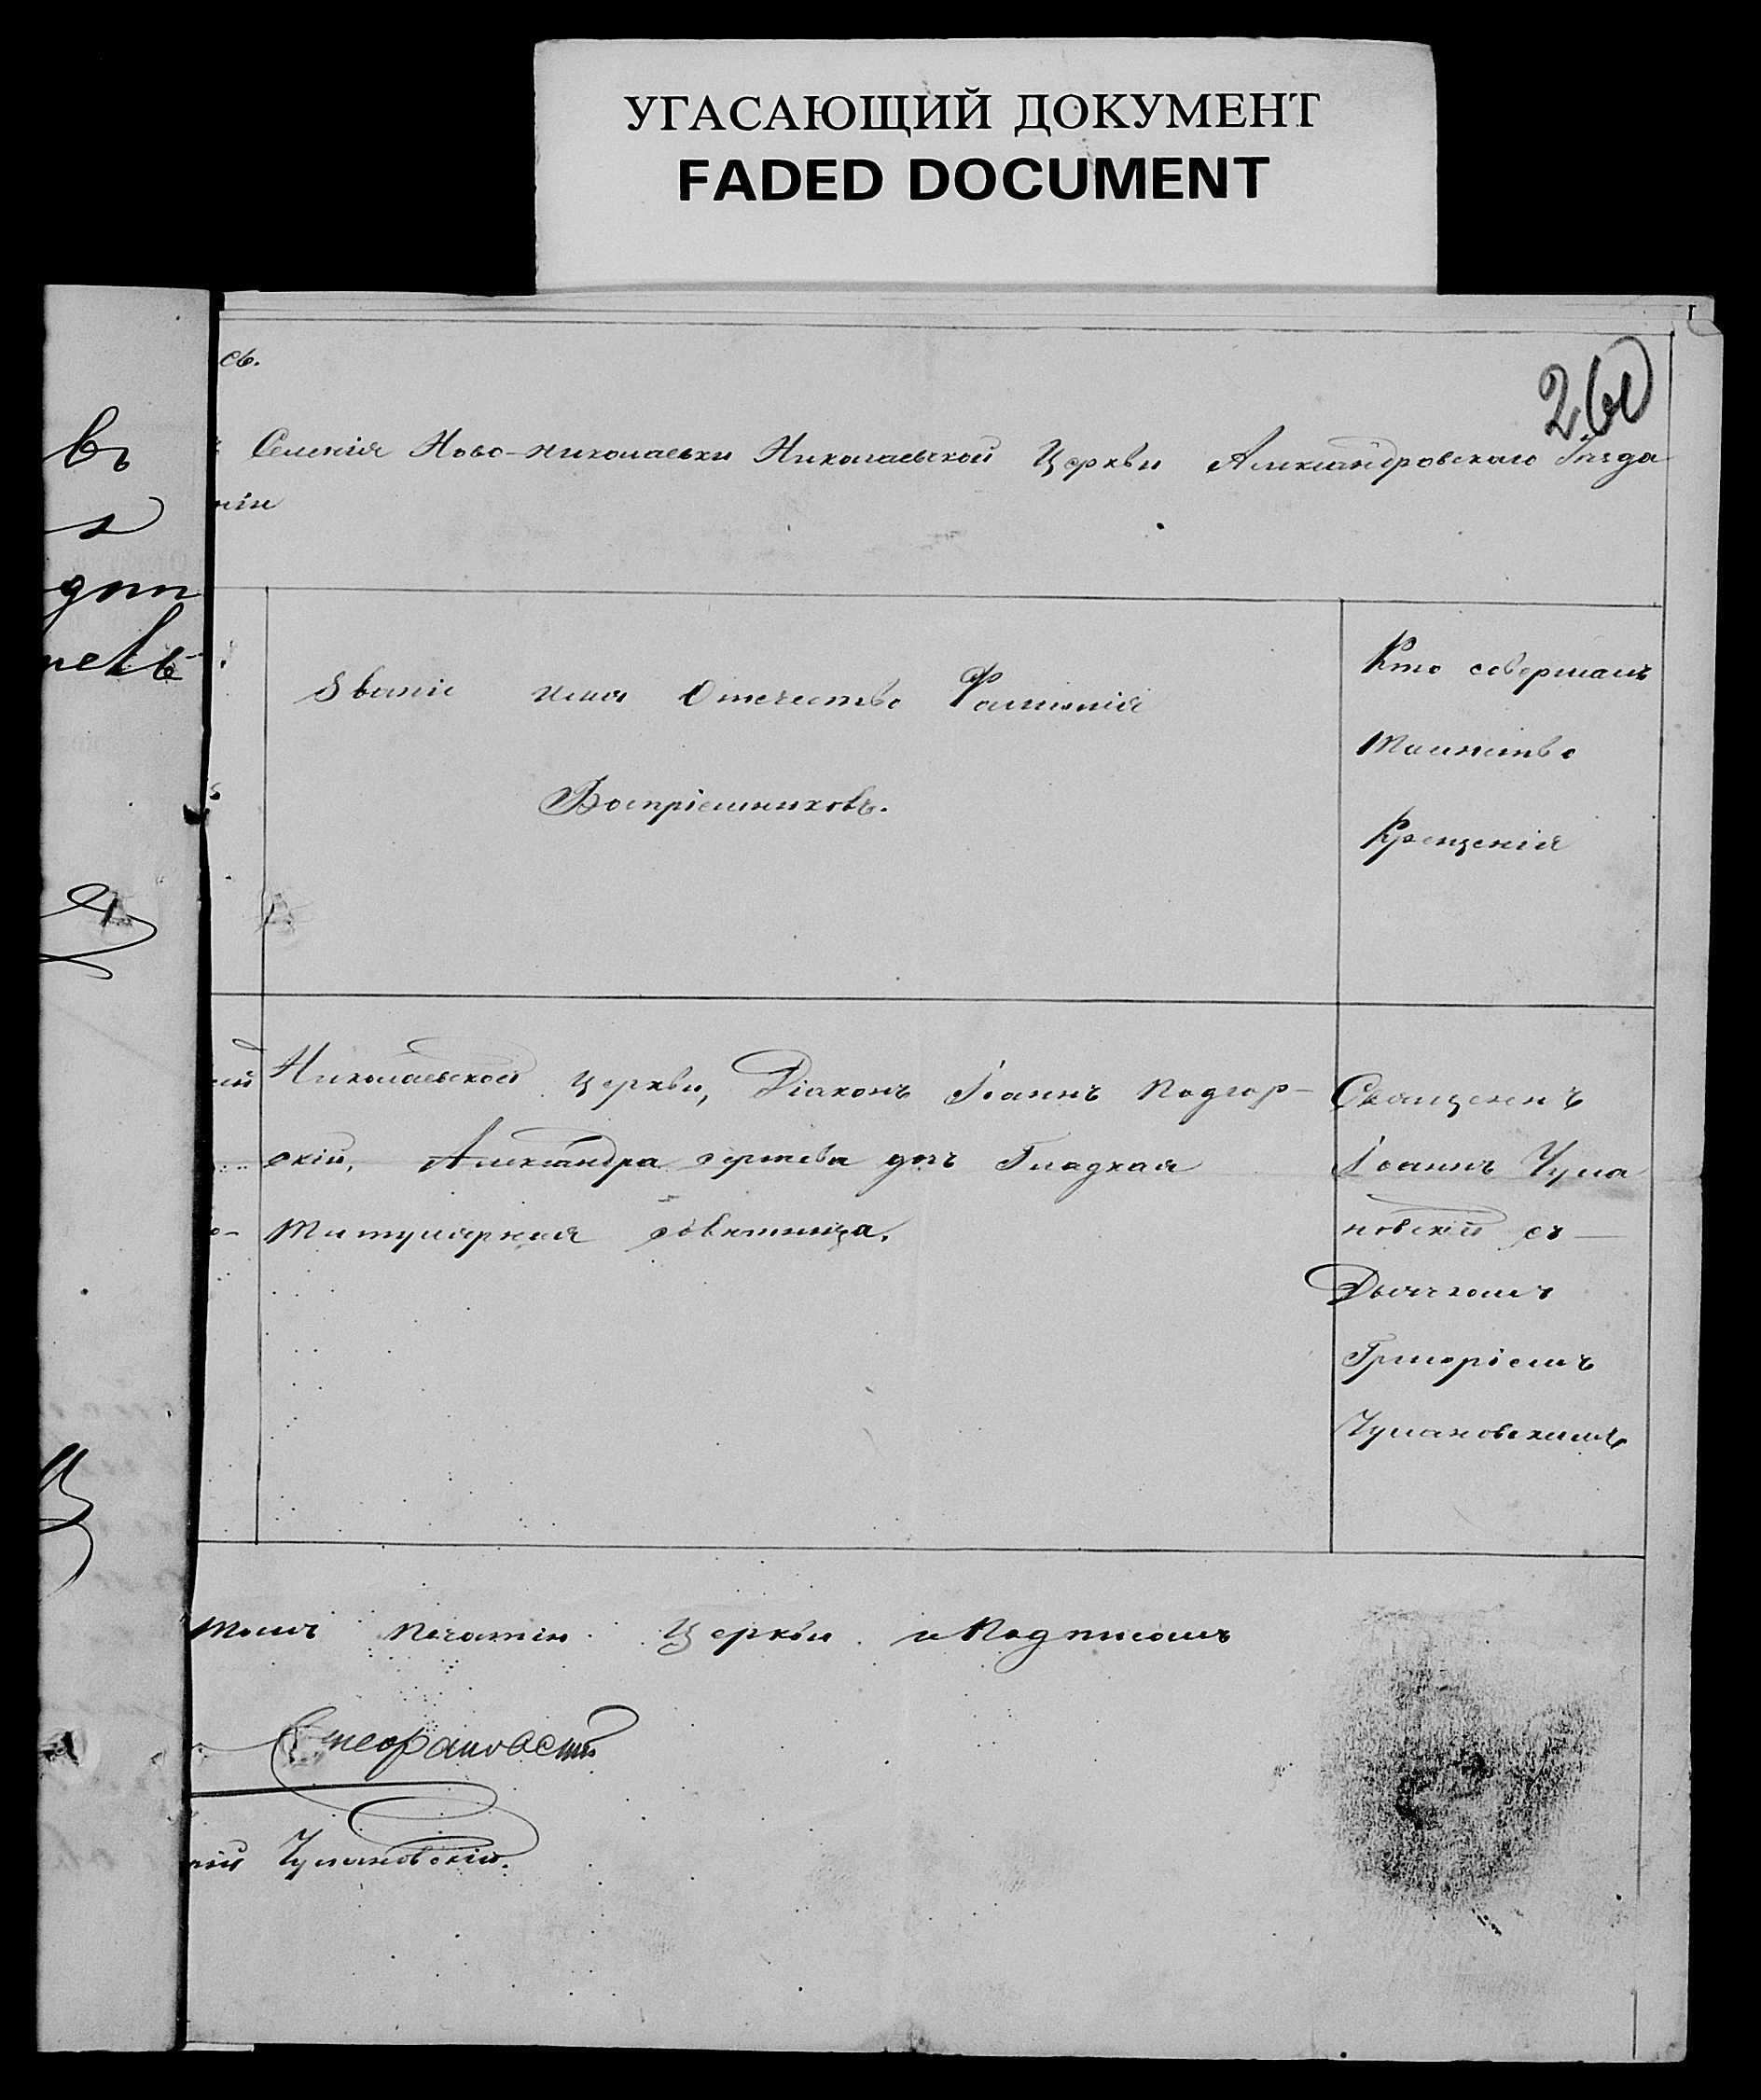 УГАСАЮЩИЙ ДОКУМЕНТ
FADED DOCUMENT
сь.
260
Селенія Ново-николаевки Николаевской Церкви Александровскаго Уѣзда
ніи
въ
дпп
Званіе имя Отчество Фамилія
Воспріемниковъ.
Кто совершалъ
Таинство
Крещенія
Николаевской Церкви, Діаконъ Іоаннъ Подгор-
скій, Александра дочь Гладкая
Титулярная совѣтница.
Священъ
Іоаннъ Чума
новскій съ
Дьячкомъ
Григоріемъ
Чумановскимъ
томъ Печатію Церкви и Подписомъ
Чумановскій.